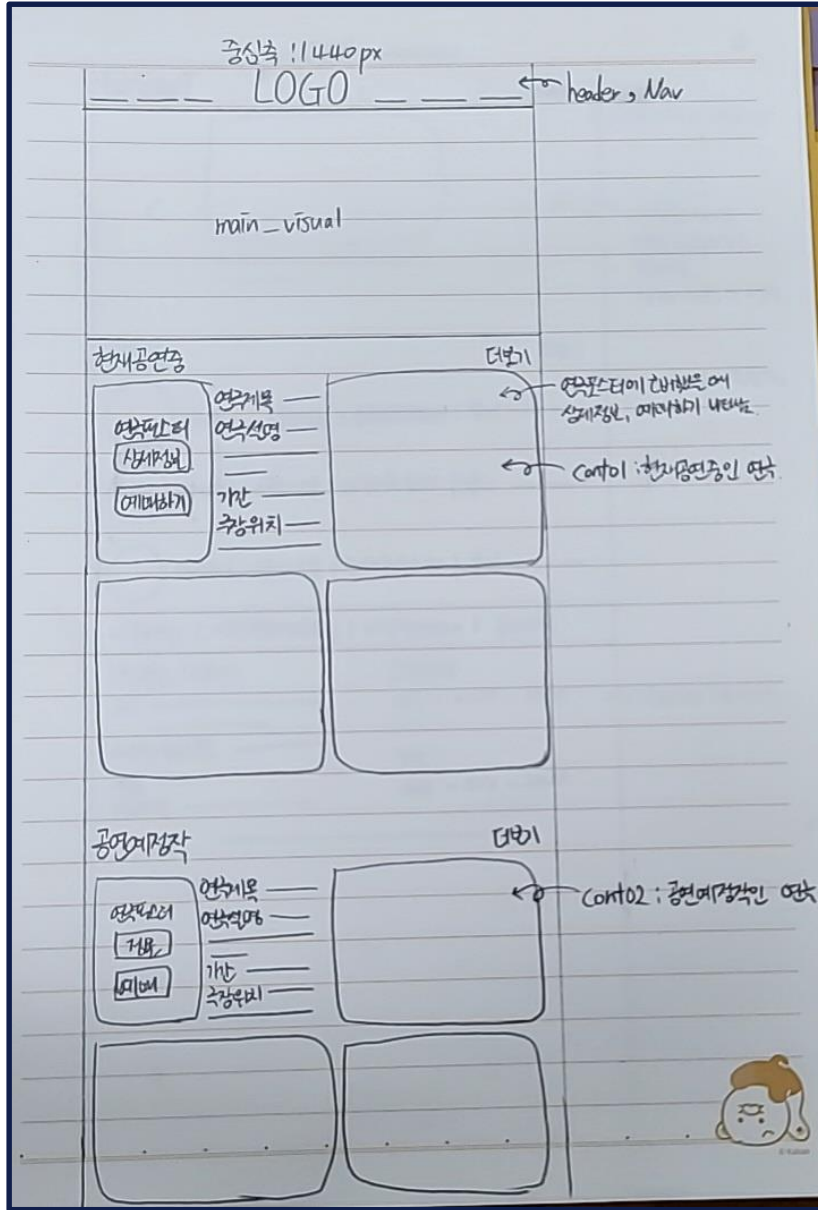 중심축 : 1440px
LOGO
header, Nav
main_visual
현재공연중
더보기
연극포스터
상세정보
예매하기
연극제목
연극설명
기간
극장위치
연극포스터에 호버했을 때
상세정보, 예매하기 나타남.
cont01 : 현재공연중인 연극
공연예정작
더보기
연극포스터
예매
연극제목
연극설명
기간
극장위치
cont02 : 공연예정작인 연극